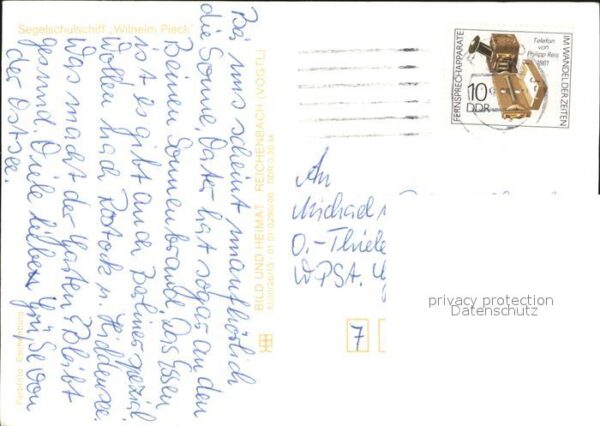 Segelschulschiff "Wilhelm Pieck"
Bei uns scheint unaufhörlich
die Sonne. Vater hat sogar an den
Beinen Sonnenbrand. Das Essen
ist es gibt auch Berliner
Wollen nach Rostock u. Hiddensee.
Was macht der Garten? Bleibt
gesund. Viele liebe Grüße von
der Ostsee.
Farbfoto:
BILD UND HEIMAT REICHENBACH (VOGTL)
01 01 0290/00 DDR 0,20 M
FERNSPRECHAPPARATE
IM WANDEL DER ZEITEN
Telefon
von
Philipp Reis
1861
10
DDR
An
Michael
O.-Thiele
WPSt.
7
privacy protection
Datenschutz